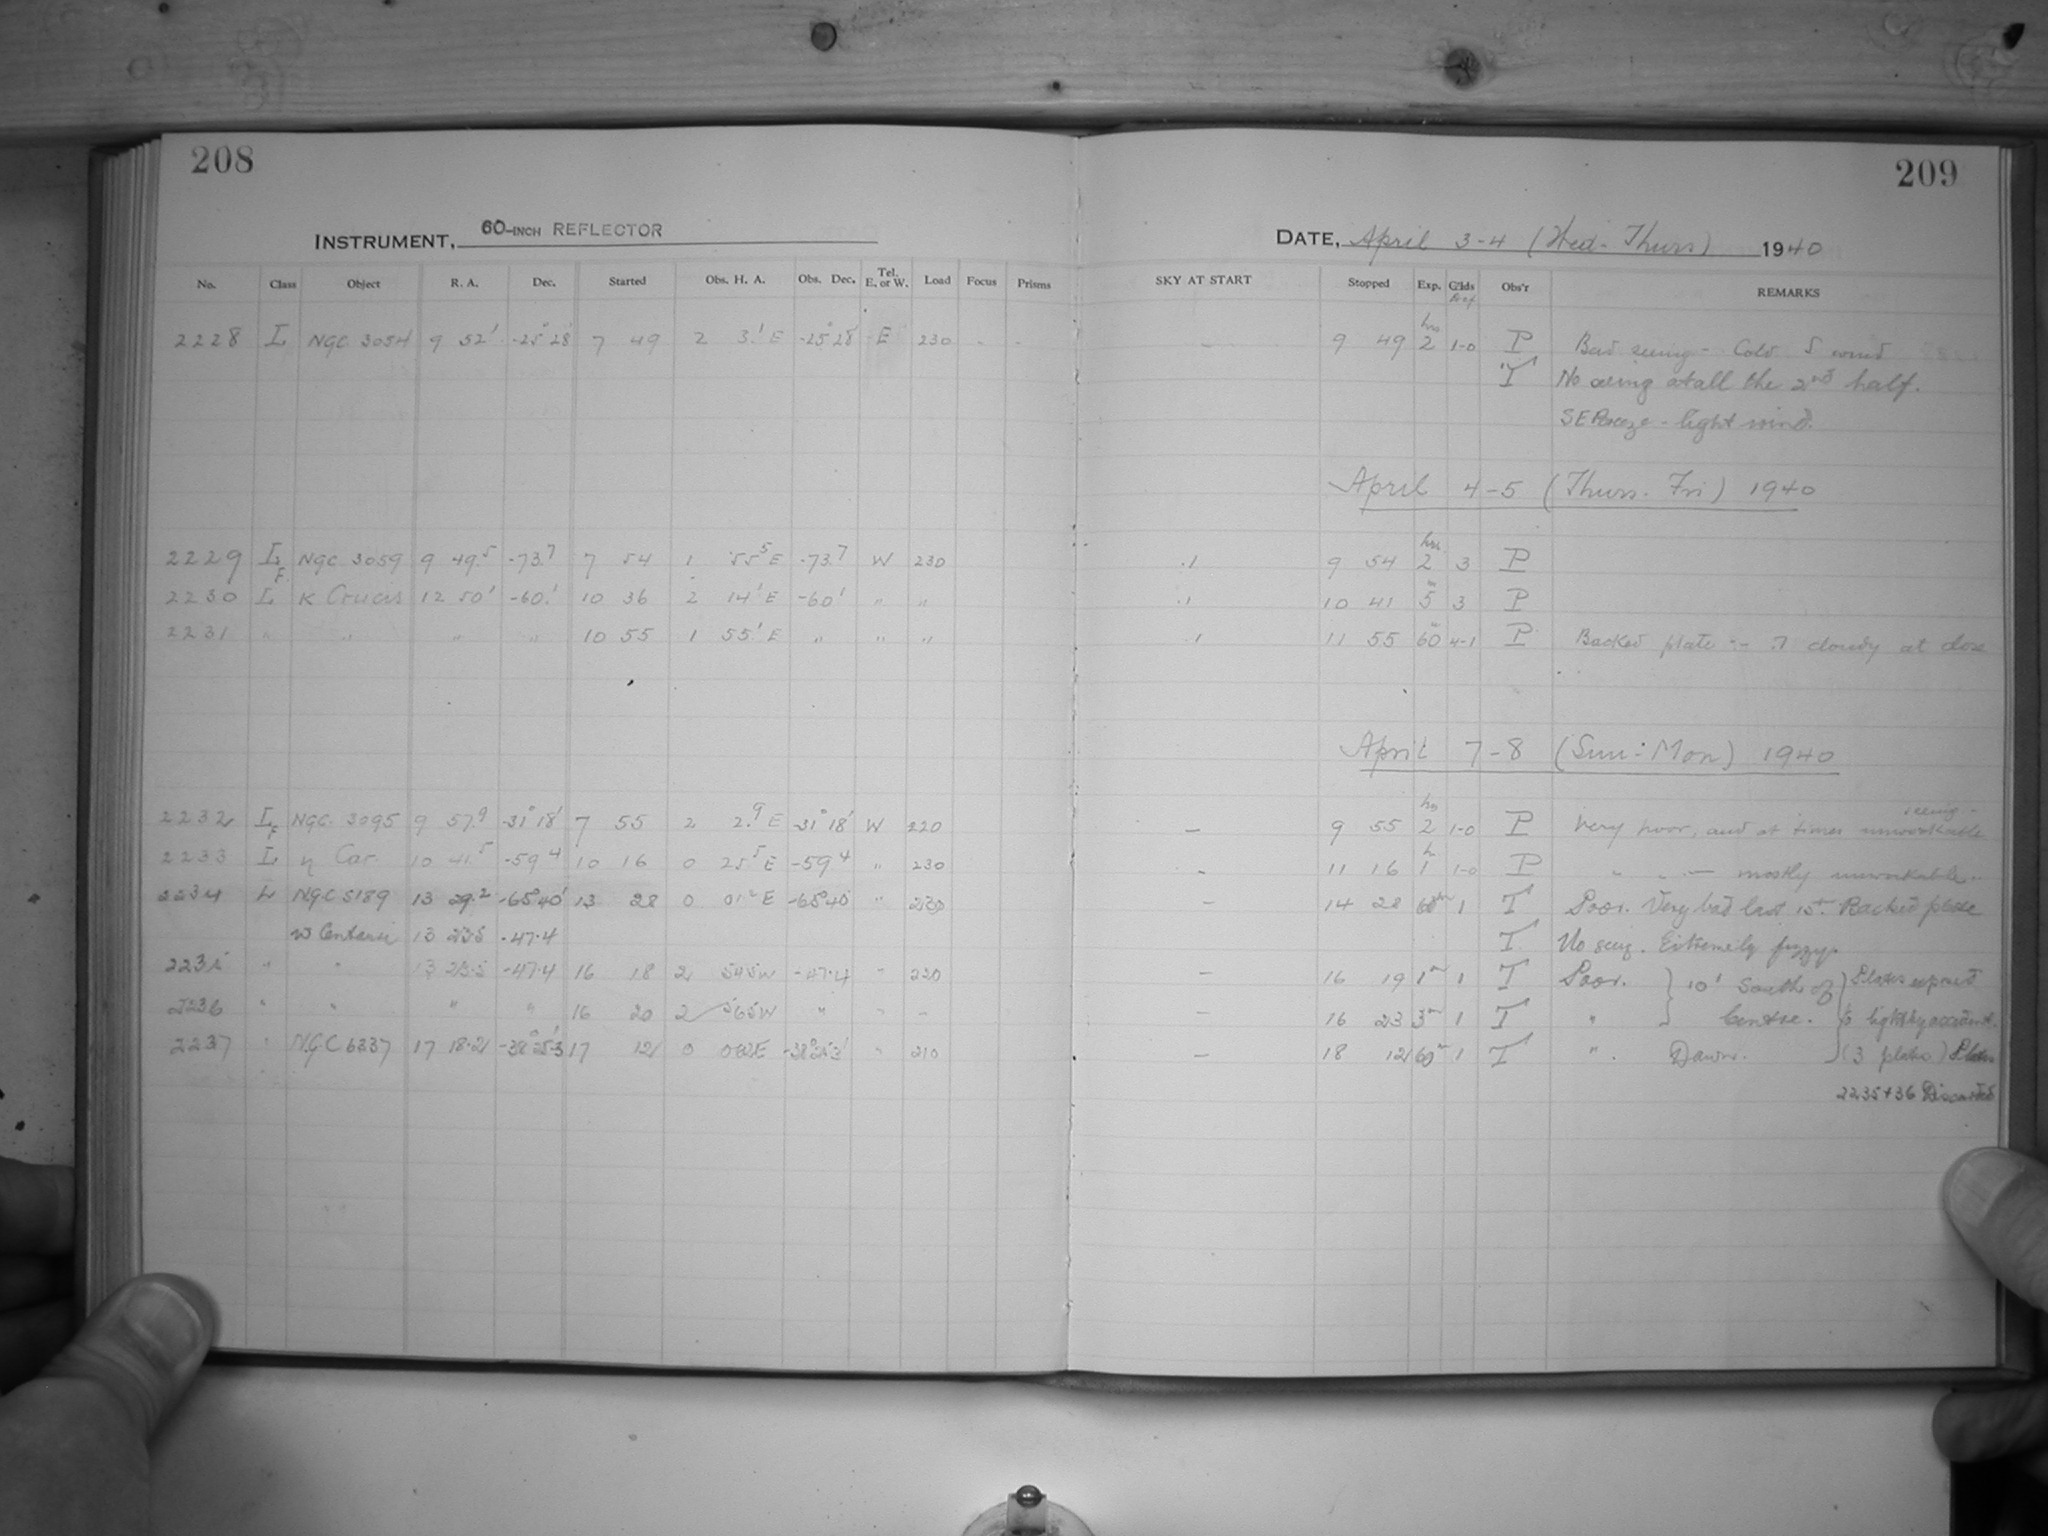 208
209
INSTRUMENT, 60-INCH REFLECTOR
DATE, April 3-4 (Wed-Thurs) 1940
No. Class Object R. A. Dec. Started Obs. H. A. Obs. Dec. Tel. E. or W. Load Focus Prisms SKY AT START Stopped Exp. Obs'r REMARKS
2228 L NGC 3054 9 52' -25° 28' 7 49 2 3.'E -25° 28' E 230 - - - 9 49 2 hrs 1-0 P Bad seeing - Cold S wind
T No seeing at all the 2nd half.
SE Breeze - light wind.
April 4-5 (Thurs. Fri) 1940
2229 LF NGC 3059 9 49.5 -73.7 7 54 1 55.5 E -73.7 W 230 .1 9 54 2 hrs 3 P
2230 L K Crucis 12 50' -60.' 10 36 2 14' E -60' " " .1 10 41 5m 3 P
2231 " " " " 10 55 1 55.' E " " " .1 11 55 60m 4-1 P Backed plate -- .7 cloudy at close
April 7-8 (Sun-Mon) 1940
2232 LF NGC 3095 9 57.9 -31° 18' 7 55 2 2.9 E -31° 18' W 220 - 9 55 2 hrs 1-0 P Very poor, and at times unworkable seeing -
2233 L η Car. 10 41.5 -59 4 10 16 0 25.5 E -59 4 " 230 - 11 16 1 h 1-0 P " " - mostly unworkable.
2234 L NGC 5189 13 29.2 -65° 40' 13 28 0 01.2 E -65° 40' " 230 - 14 28 60m 1 T Poor. Very bad last 15m. Backed plate
w Centauri 13 23.5 -47.4 T No seeing. Extremely fuzzy.
2235 " " 13 23.5 -47.4 16 18 2 54.5W -47.4 " 220 - 16 19 1m 1 T Poor. } 10' South of } Plates exposed
2236 " " " " 16 20 2 56.5W " " - - 16 23 3m 1 T " } Centre. } to light by accident.
2237 " NGC 6337 17 18.2 -38° 25.'3 17 12 0 08.2E -38° 25.'3 " 210 - 18 12 60m 1 T ". Dawn. } (3 plates) Plates
2235+36 Discarded